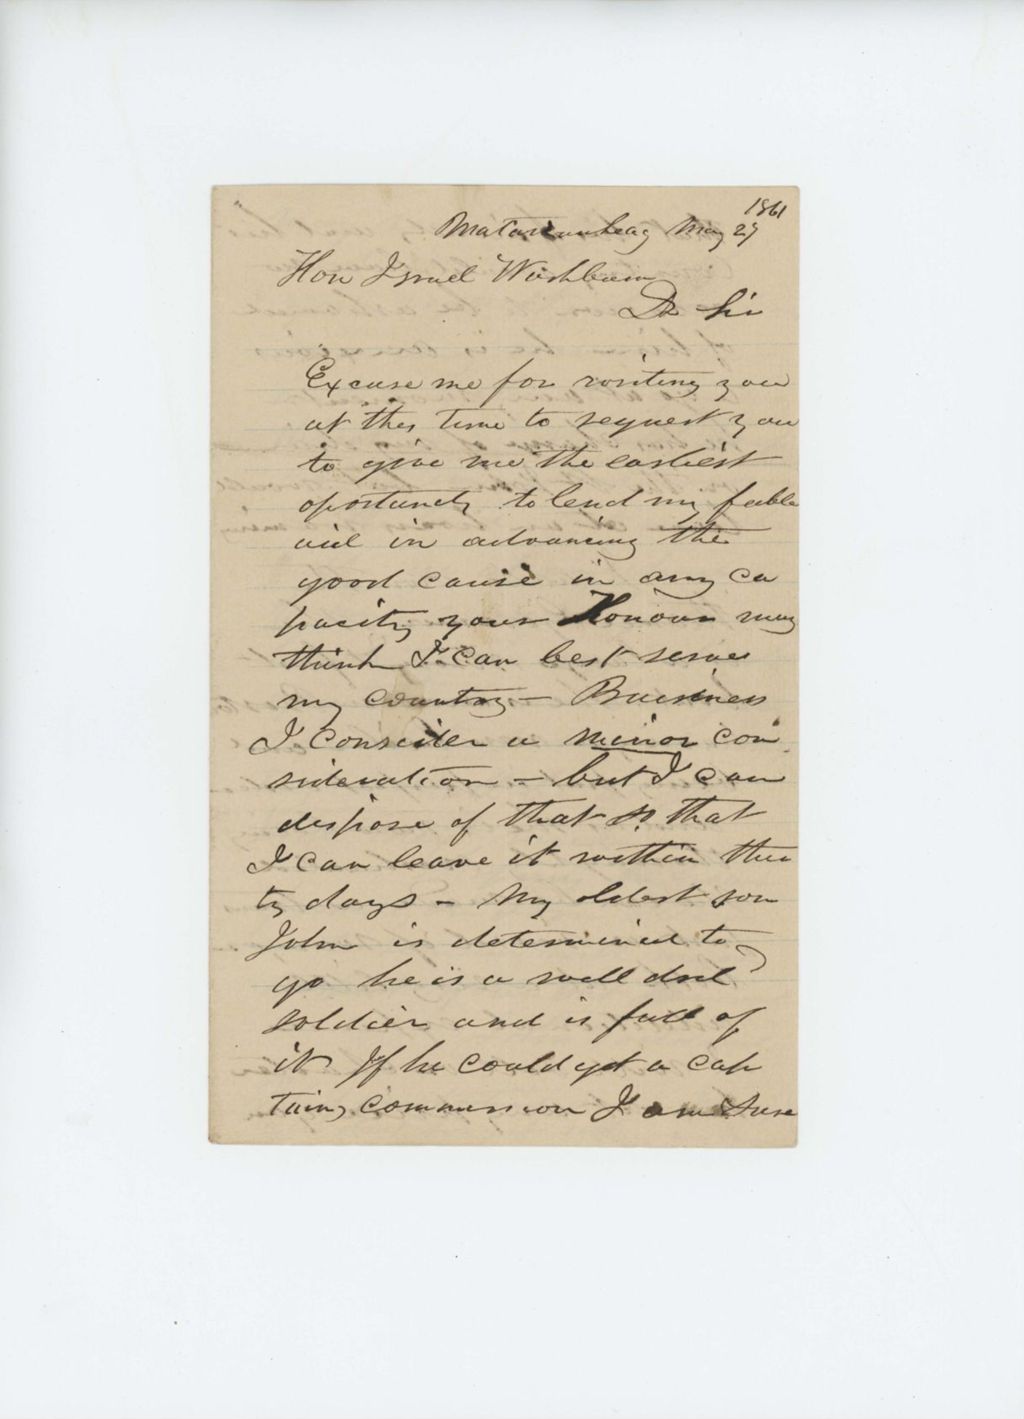 1861
Mattawamkeag May 27
Hon Israel Washburn
Dr Sir
Excuse me for writing you
at this time to request you
to give me the earliest
oportunety to lend my feeble
aid in advancing the
good cause in any ca
pacity your Honour may
think I can best serve
my country – Buisiness
I consider a minor con
sideration – but I can
dispose of that so that
I can leave it within thir
ty days – My oldest son
John is determined to
go he is a well dril'd
soldier and is full of
it If he could get a cap
tains commission I am sure